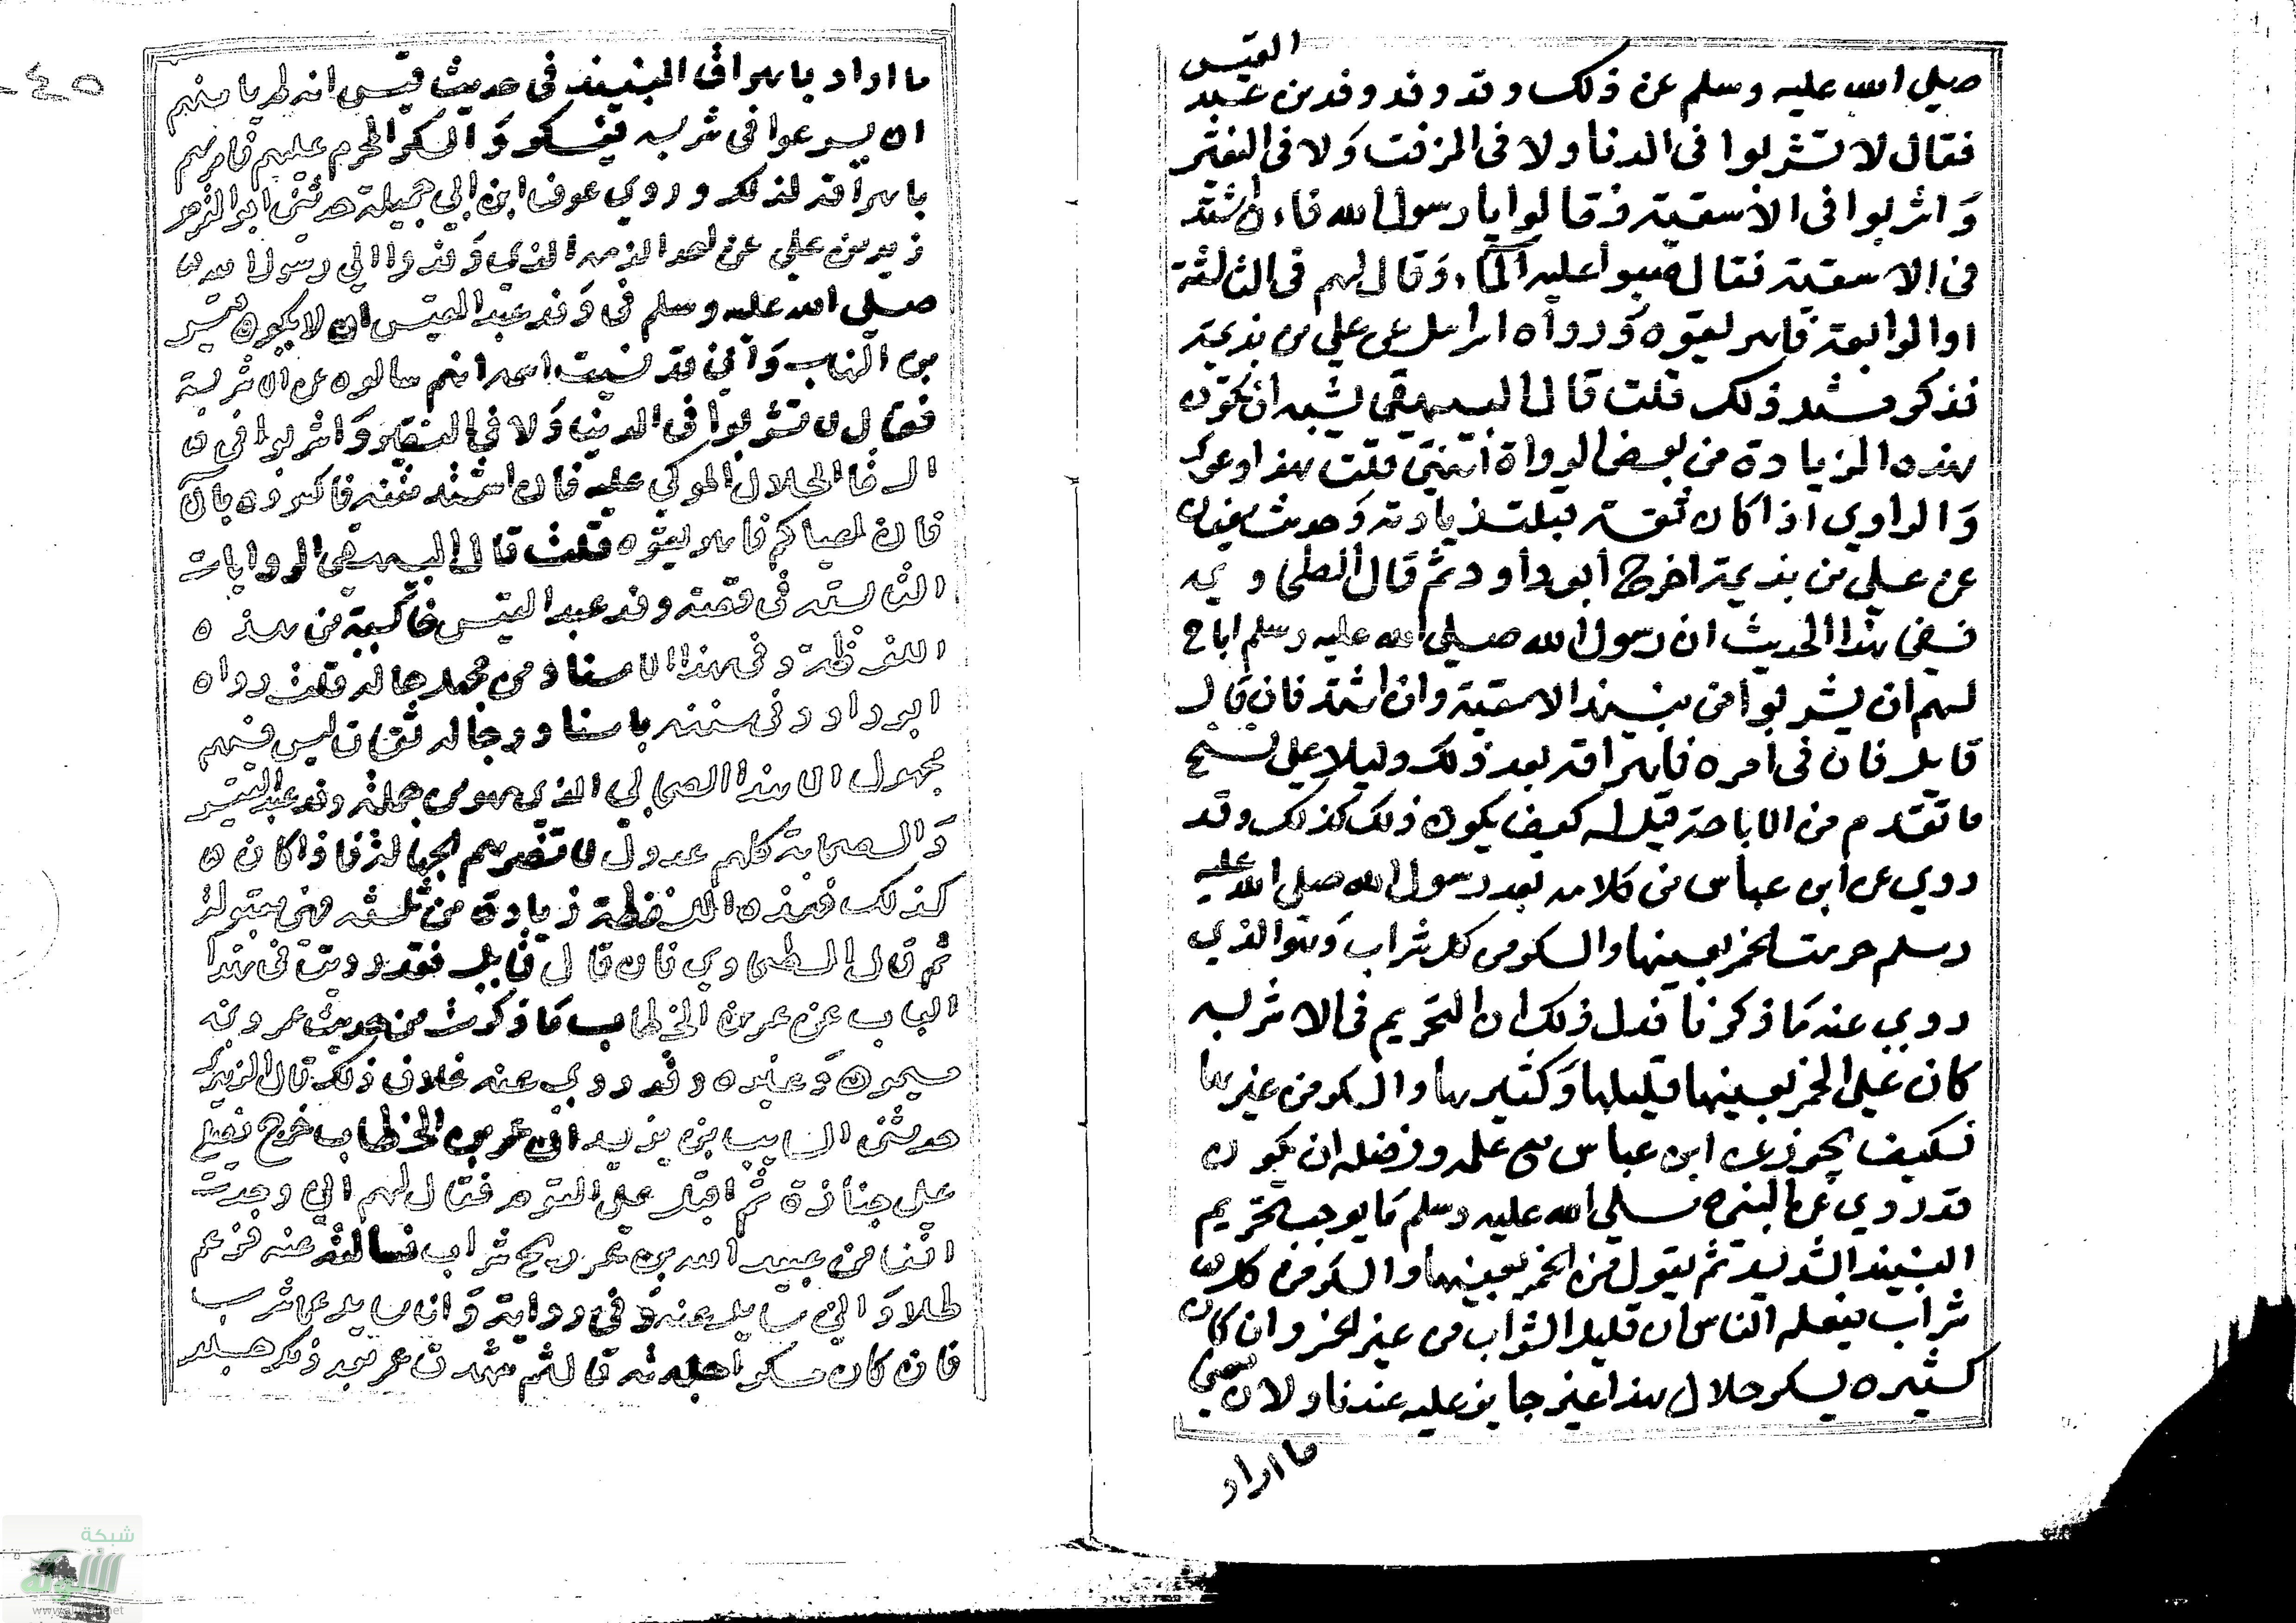 القيس
صلي الله عليه وسلم عن ذلك وقد وفد وفد من عبد
فقال لا تشربوا فى الدنا ولا فى المزفت وَلا فى النقير
وَاشربوا فى الاسقية فقالوا يا رسول الله فاء ن اشتد
فى الاسقية فقال صبوا عليه الماء وَقال لهم فى الثالثة
اوالرابعة فاهريقوه وَرواه اسرائيل عن علي بن بذيمة
فذكر مسند ذلك قلت قال البيهقى يشبه ان تكون
هذه الزيادة من بعض الرواة قلت هذا دعوي
وَالراوي اذا كان ثقة قبلت زيادته وَحديث سفيان
عن علي بن بذيمة اخرج ابو داود ثم قال الطحاوي
ففى هذا الحديث ان رسول الله صلي الله عليه وسلم اباح
لهم ان يشربوا من نبيذ الاسقية وان اشتد فان قال
قايل فان فى امره فاهراقه بعد ذلك دليلا على نسخ
ما تقدم من الاباحة قيل له كيف يكون ذلك كذلك وقد
روي عن ابن عباس من كلامه بعد رسول الله صلي الله عليه
وسلم حرمت الخمر بعينها والسكر من كل شراب وَهو الذي
روي عنه مَا ذكرنا فدل ذلك ان التحريم فى الاشربه
كان عَلى الخمر بعينها قليلها وَكثيرها والسكر من غيرها
فكيف يجوز على ابن عباس مع علمه وفضله ان يكون
قد روي عن النبي صلي الله عليه وسلم مَا يوجب تحريم
النبيذ الشديد ثم يقول من الخمر بعينها والسكر من كل
شراب فيعلم الناس ان قليل الشراب من غير الخمر وان كان
كثيره يسكر حلال هذا غير جايز عليه عندنا ولان معني
ما اراد
ما اراد باهراق النبيذ فى حديث قيس انه لم يامنهم
ان يسرعوا فى شربه فيسكر وَالسكر المحرم عليهم فامرهم
باهراقه لذلك وروي عوف ابن ابي جميلة حدثنى ابو القموص
زيد بن علي عن احد الذين وَفدوا الي رسول الله
صلي الله عليه وسلم فى وَفد عبد القيس ان لا يكون قيس
بن النعمان وَاني قد نسيت اسمه انهم سالوه عن الاشربة
فقال لا تشربوا فى الدبا وَلا فى النقير وَاشربوا فى
السقا الحلال الموكي عليه فان اشتد منه فاكسروه بالماء
فان اعياكم فاهريقوه قلت قال البيهقى الروايات
الثابته فى قصة وفد عبد القيس خالية من هذه
اللفظة وفى هذا الاسناد من يجهل حاله قلت رواه
ابو داود فى سننه باسناد رجاله ثقات ليس فيهم
مجهول الا هذا الصحابي الذي هو من جملة وفد عبد القيس
وَالصحابة كلهم عدول لا تضرهم الجهالة فاذا كان
كذلك فهذه اللفظة زيادة من ثقة فهى مقبولة
ثم قال الطحاوي فان قال قايل فقد رويت فى هذا
الباب عن عمر بن الخطاب مَا ذكرت من حديث عمرو بن
ميمون وَغيره وقد روي عنه خلاف ذلك قال الزهري
حدثنى السايب بن يزيد ان عمر بن الخطاب خرج فصلى
على جنازة ثم اقبل على القوم فقال لهم اني وجدت
انفا من عبيد الله بن عمر ريح شراب فسالته عنه فزعم
طلا وَاني سايل عنه وَفى رواية وَانا سايل عما شرب
فان كان مسكرا جلدته قال ثم شهدت عمر بعد ذلك جلد